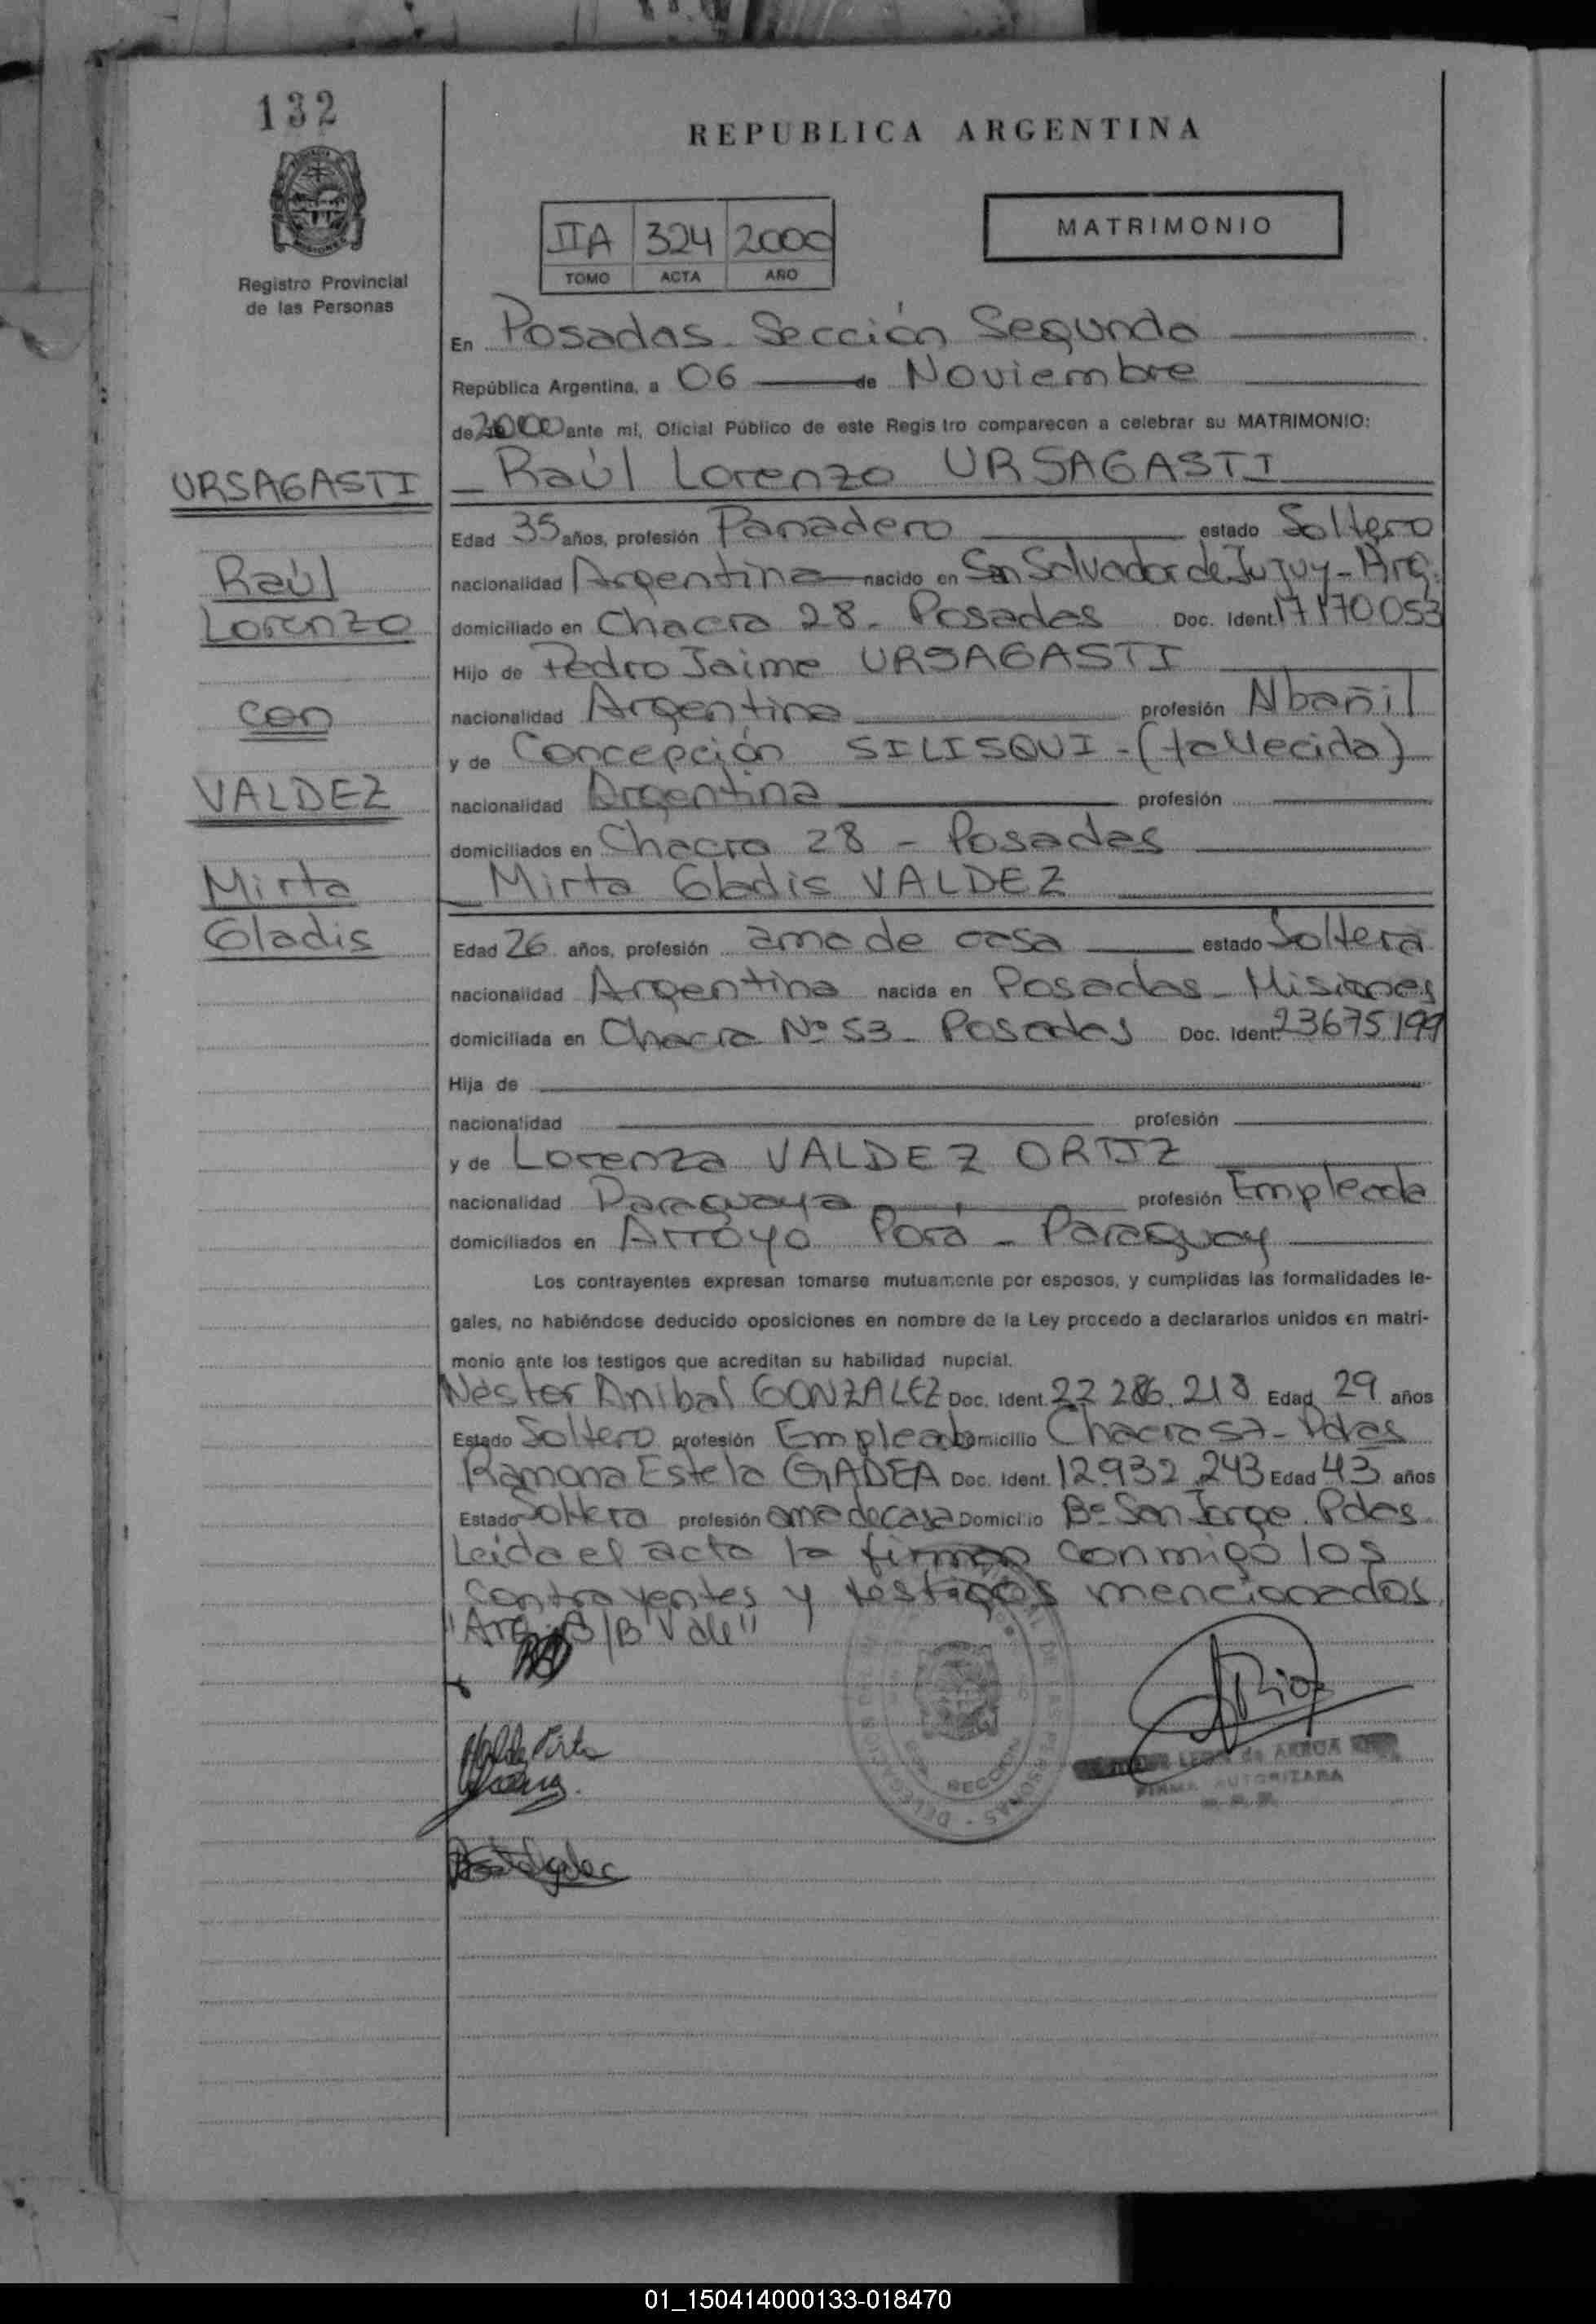 132
REPUBLICA ARGENTINA
IIA 324 2000
TOMO ACTA AÑO
MATRIMONIO
Registro Provincial
de las Personas
En Posadas. Sección Segunda
República Argentina, a 06 de Noviembre
de 2000 ante mí, Oficial Público de este Registro comparecen a celebrar su MATRIMONIO:
URSAGASTI
Raúl Lorenzo URSAGASTI
Edad 35 años, profesión Panadero estado Soltero
Raúl
nacionalidad Argentina nacido en San Salvador de Jujuy - Arg.
Lorenzo
domiciliado en Chacra 28. Posadas Doc. Ident. 17170053
Hijo de Pedro Jaime URSAGASTI
con
nacionalidad Argentina profesión Albañil
y de Concepción SILISQUI - (fallecida)
VALDEZ
nacionalidad Argentina profesión
domiciliados en Chacra 28 - Posadas
Mirta
Mirta Gladis VALDEZ
Gladis
Edad 26 años, profesión ama de casa estado Soltera
nacionalidad Argentina nacida en Posadas - Misiones
domiciliada en Chacra Nº 53 - Posadas Doc. Ident. 23675199
Hija de
nacionalidad profesión
y de Lorenza VALDEZ ORTIZ
nacionalidad Paraguaya profesión Empleada
domiciliados en Arroyo Porá - Paraguay
Los contrayentes expresan tomarse mutuamente por esposos, y cumplidas las formalidades le-
gales, no habiéndose deducido oposiciones en nombre de la Ley procedo a declararlos unidos en matri-
monio ante los testigos que acreditan su habilidad nupcial.
Néstor Anibal GONZALEZ Doc. Ident. 22.286.218 Edad 29 años
Estado Soltero profesión Empleado Domicilio Chacra 57 - Pdas
Ramona Estela GADEA Doc. Ident. 12.932.243 Edad 43 años
Estado Soltera profesión ama de casa Domicilio Bº San Jorge. Pdas.
Leida el acta la firman conmigo los
contrayentes y testigos mencionados.
"Arg. B/B Vale"
SECCION
LEON de ARRUA
FIRMA AUTORIZADA
01_150414000133-018470